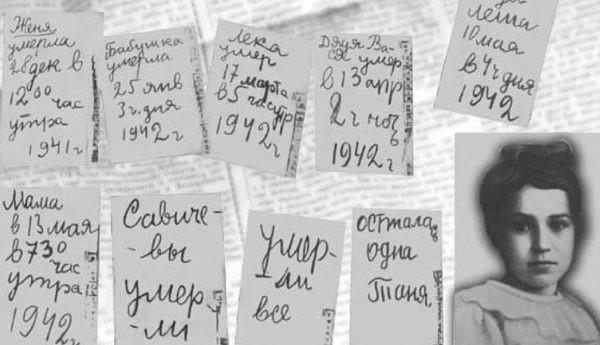 Женя
умерла
28 дек в
12⁰⁰ час
утра
1941 г
Бабушка
умерла
25 янв
3 ч. дня
1942 г
Лека
умер
17 марта
в 5 час утр
1942 г
Дядя Ва-
ся умер
в 13 апр
2 ч ноч
1942 г
Леша
10 мая
в 4 ч дня
1942
Мама
в 13 мая
в 7³⁰
час
утра
1942 г
Савиче-
-вы
умер-
-ли
умер-
-ли
все
осталась
одна
Таня